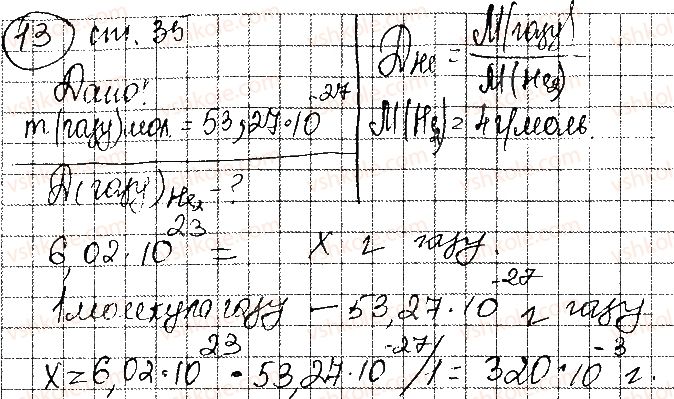 13 ст. 39
Дано:
m(газу)мол. = 53,27·10⁻²⁷
D(газу)He₂ - ?
D He = M(газу) / M(He₂)
M(He₂) = 4 г/моль.
6,02·10²³ = x г газу.
1 молекула газу – 53,27·10⁻²⁷ г газу
x = 6,02·10²³ · 53,27·10⁻²⁷/1 = 320·10⁻³ г.